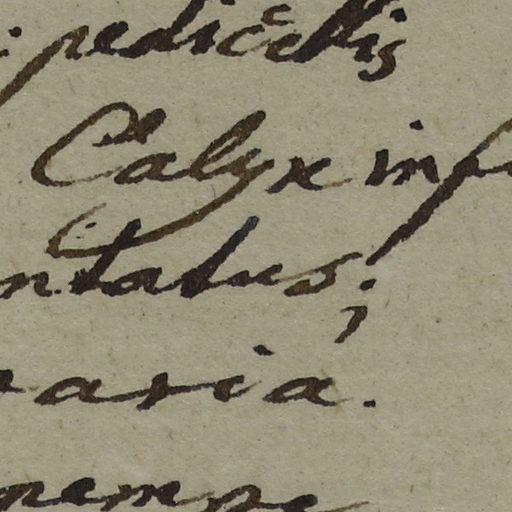 pedicellis
Calyx inf
ntatus;
aria.
nempe